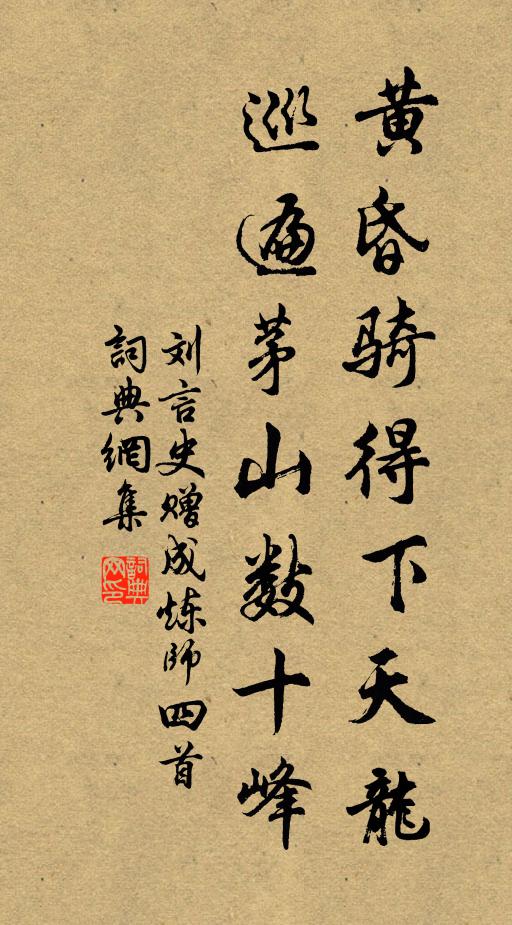 黄昏骑得下天龍
巡遍茅山数十峰
刘言史赠成炼师四首
詞典網集
詞典網印